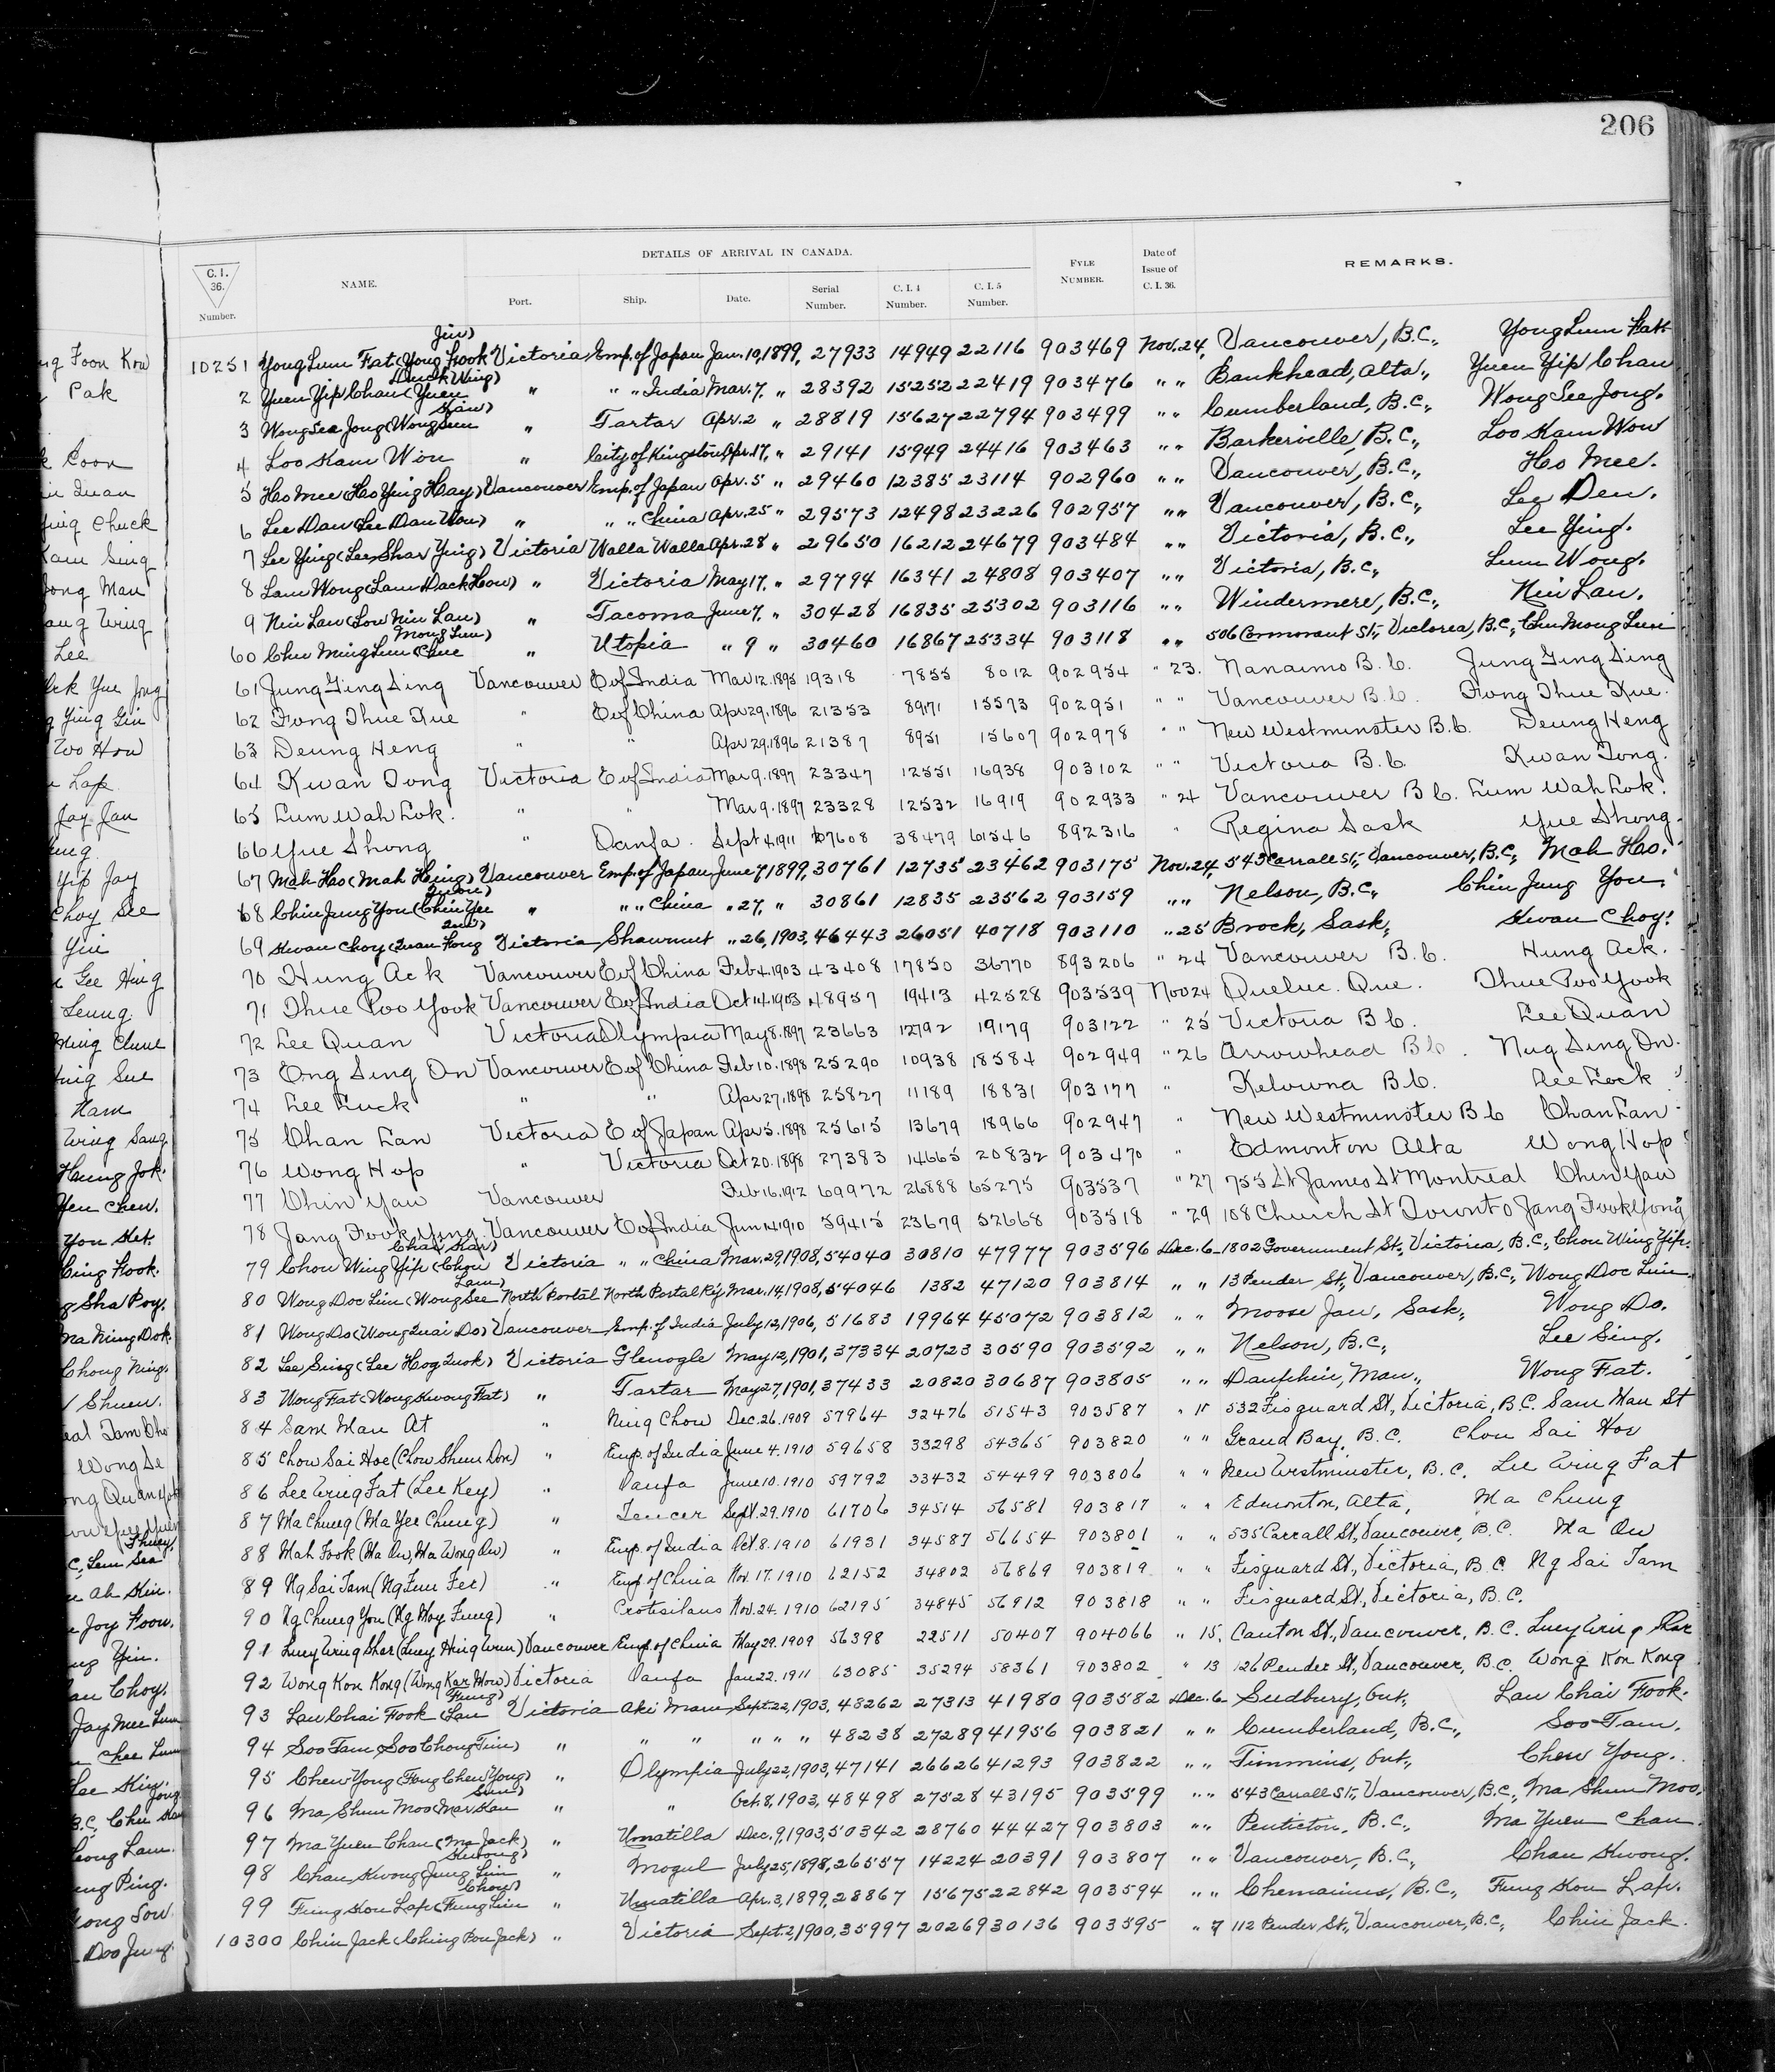 206
DETAILS OF ARRIVAL IN CANADA.
C. I. 36. Number. NAME. Port. Ship. Date. Serial Number. C. I. 4 Number. C. I. 5 Number. FYLE NUMBER. Date of Issue of C. I. 36. REMARKS.
10251 Yong Lum Fat (Yong Fook Jin) Victoria Emp. of Japan Jan. 10, 1899, 27933 14949 22116 903469 Nov. 24, Vancouver, B.C., Yong Lum Fat
2 Yuen Yip Chan (Yuen Wing) " " " India Mar. 7, " 28392 15252 22419 903476 " " Bankhead, Alta., Yuen Yip Chan
3 Wong See Jong (Wong Sun " Tartar Apr. 2 " 28819 15627 22794 903499 " " Cumberland, B.C., Wong See Jong.
4 Loo Kam Won " City of Kingston Apr. 17, " 29141 15949 24416 903463 " " Barkerville, B.C., Loo Kam Won
5 Ho Mee (Ho Ying Hay) Vancouver Emp. of Japan Apr. 5 " 29460 12385 23114 902960 " " Vancouver, B.C., Ho Mee.
6 Lee Dan (Lee Dan Won) " " " China Apr. 25 " 29573 12498 23226 902957 " " Vancouver, B.C., Lee Den.
7 Lee Ying (Lee Shar Ying) Victoria Walla Walla Apr. 28 " 29650 16212 24679 903484 " " Victoria, B.C., Lee Ying.
8 Lam Wong (Lam Dack How) " Victoria May 17, " 29794 16341 24808 903407 " " Victoria, B.C., Lum Wong.
9 Nin Lan (Low Nin Lan) " Tacoma June 7, " 30428 16835 25302 903116 " " Windermere, B.C., Nin Lan.
60 Chu Ming Lum (Chue Mong Lum) " Utopia " 9 " 30460 16867 25334 903118 " " 506 Cormorant St., Victoria, B.C., Chu Mong Lum
61 Jung Ging Sing Vancouver E of India Mar 12. 1895 19318 7855 8012 902954 " 23. Nanaimo B.C. Jung Ging Sing
62 Fong Thue Kue " E of China Apr 29. 1896 21353 8971 15573 902951 " " Vancouver B.C. Fong Thue Kue.
63 Deung Heng " " Apr 29. 1896 21387 8951 15607 902978 " " New Westminster B.C. Deung Heng
64 Kwan Tong Victoria E of India Mar 9. 1897 23347 12551 16938 903102 " " Victoria B.C. Kwan Tong.
65 Lum Wah Lok. " " Mar 9. 1897 23328 12532 16919 902933 " 24 Vancouver B.C. Lum Wah Lok.
66 Yue Shong " Oanfa. Sept 4. 1911 67608 38479 61546 892316 " Regina Sask Yue Shong.
67 Mah Hao (Mah Heing) Vancouver Emp. of Japan June 7 1899, 30761 12735 23462 903175 Nov. 24, 543 Carrall St., Vancouver, B.C., Mah Hao.
68 Chin Jung You (Chin Yee " " " China " 27, " 30861 12835 23562 903159 " " Nelson, B.C., Chin Jung You.
69 Kwan Choy (Quan Fong Victoria Shawmut " 26, 1903, 46443 26051 40718 903110 " 25 Brock, Sask., Kwan Choy.
70 Hung Ack Vancouver E of China Feb 4. 1903 43408 17850 36770 893206 " 24 Vancouver B.C. Hung Ack.
71 Thue Poo Yook Vancouver E of India Oct 14. 1903 48957 19413 42528 903539 Nov 24 Quebec. Que. Thue Poo Yook
72 Lee Quan Victoria Olympia May 8. 1897 23663 12792 19179 903122 " 25 Victoria B.C. Lee Quan
73 Eng Sing On Vancouver E of China Feb 10. 1898 25290 10938 18584 902949 " 26 Arrowhead B.C. Nug Sing On.
74 Lee Luck " " Apr 27. 1898 25827 11189 18831 903177 " Kelowna B.C. Lee Lock
75 Chan Lan Victoria E of Japan Apr 5. 1898 25615 13679 18966 902947 " New Westminster B.C. Chan Lan
76 Wong Hop " Victoria Oct 20. 1898 27383 14665 20832 903470 " Edmonton Alta Wong Hop
77 Chin Yau Vancouver Feb 16. 1912 69972 26888 65275 903537 " 27 755 St James St Montreal Chin Yau
78 Jang Fook Yong. Vancouver E of India Jun 14 1910 59415 23679 52668 903518 " 29 108 Church St Toronto Jang Fook Yong
79 Chou Wing Yip (Chou Chai Kar) Victoria " " China Mar. 29, 1908, 54040 30810 47977 903596 Dec. 6 1802 Government St., Victoria, B.C., Chou Wing Yip.
80 Wong Doc Lim (Wong See Lam) North Portal North Portal Ry. Mar. 14, 1908, 54046 1382 47120 903814 " " 13 Pender St., Vancouver, B.C., Wong Doc Lim.
81 Wong Do (Wong Quai Do) Vancouver Emp. of India July 12, 1906, 51683 19964 45072 903812 " " Moose Jaw, Sask., Wong Do.
82 Lee Sing (Lee Hog Quok) Victoria Glenogle May 12, 1901, 37334 20723 30590 903592 " " Nelson, B.C., Lee Sing.
83 Wong Fat (Wong Kwong Fat) " Tartar May 27, 1901, 37433 20820 30687 903805 " " Dauphin, Man., Wong Fat.
84 Sam Man At " Ning Chow Dec. 26. 1909 57964 32476 51543 903587 " 15 532 Fisguard St., Victoria, B.C. Sam Man St
85 Chow Sai Hoe (Chow Shum Don) " Emp. of India June 4. 1910 59658 33298 54365 903820 " " Grand Bay, B.C. Chou Sai Hov
86 Lee Wing Fat (Lee Key) " Oanfa June 10. 1910 59792 33432 54499 903806 " " New Westminster, B.C. Lee Wing Fat
87 Ma Chung (Ma Yee Chung) " Teucer Sept. 29. 1910 61706 34514 56581 903817 " " Edmonton, Alta, Ma Chung
88 Mah Fook (Ma On, Ma Wong On) " Emp. of India Oct. 8. 1910 61931 34587 56654 903801 " " 535 Carrall St., Vancouver, B.C. Ma On
89 Ng Sai Tam (Ng Fun Fee) " Emp of China Nov. 17. 1910 62152 34802 56869 903819 " " Fisguard St., Victoria, B.C. Ng Sai Tam
90 Ng Chung You (Ng Moy Fung) " Protesilaus Nov. 24. 1910 62195 34845 56912 903818 " " Fisguard St., Victoria, B.C.
91 Luey Wing Shar (Luey Hing Wun) Vancouver Emp. of China May 29. 1909 56398 22511 50407 904066 " 15. Canton St., Vancouver, B.C. Luey Wing Shar
92 Wong Kon Kong (Wong Kar How) Victoria Oanfa Jan 22. 1911 63085 35294 58361 903802 " 13 126 Pender St., Vancouver, B.C. Wong Kon Kong
93 Lau Chai Fook (Lau Fung) Victoria Aki Maru Sept. 22, 1903, 48262 27313 41980 903582 Dec. 6 Sudbury, Ont., Lau Chai Fook.
94 Soo Tam (Soo Chong Tim) " " " " " " 48238 27289 41956 903821 " " Cumberland, B.C., Soo Tam.
95 Chew Yong (Fong Chew Yong) " Olympia July 22, 1903, 47141 26626 41293 903822 " " Timmins, Ont., Chew Yong.
96 Ma Shum Moo (Mar Kau Sum) " " Oct. 8, 1903, 48498 27528 43195 903599 " " 543 Carrall St., Vancouver, B.C., Ma Shum Moo.
97 Ma Yuen Chan (Ma Jack) " Umatilla Dec. 9, 1903, 50342 28760 44427 903803 " " Penticton, B.C., Ma Yuen Chan.
98 Chan Kwong Jung Lim Kwong) " Mogul July 25, 1898, 26557 14224 20391 903807 " " Vancouver, B.C., Chan Kwong.
99 Fung Kou Lap (Fung Lin Chow) " Umatilla Apr. 3, 1899, 28867 15675 22842 903594 " " Chemainus, B.C., Fung Kou Lap.
10300 Chin Jack (Ching Pon Jack) " Victoria Sept. 2, 1900, 35997 20269 30136 903595 " 7 112 Pender St., Vancouver, B.C., Chin Jack.